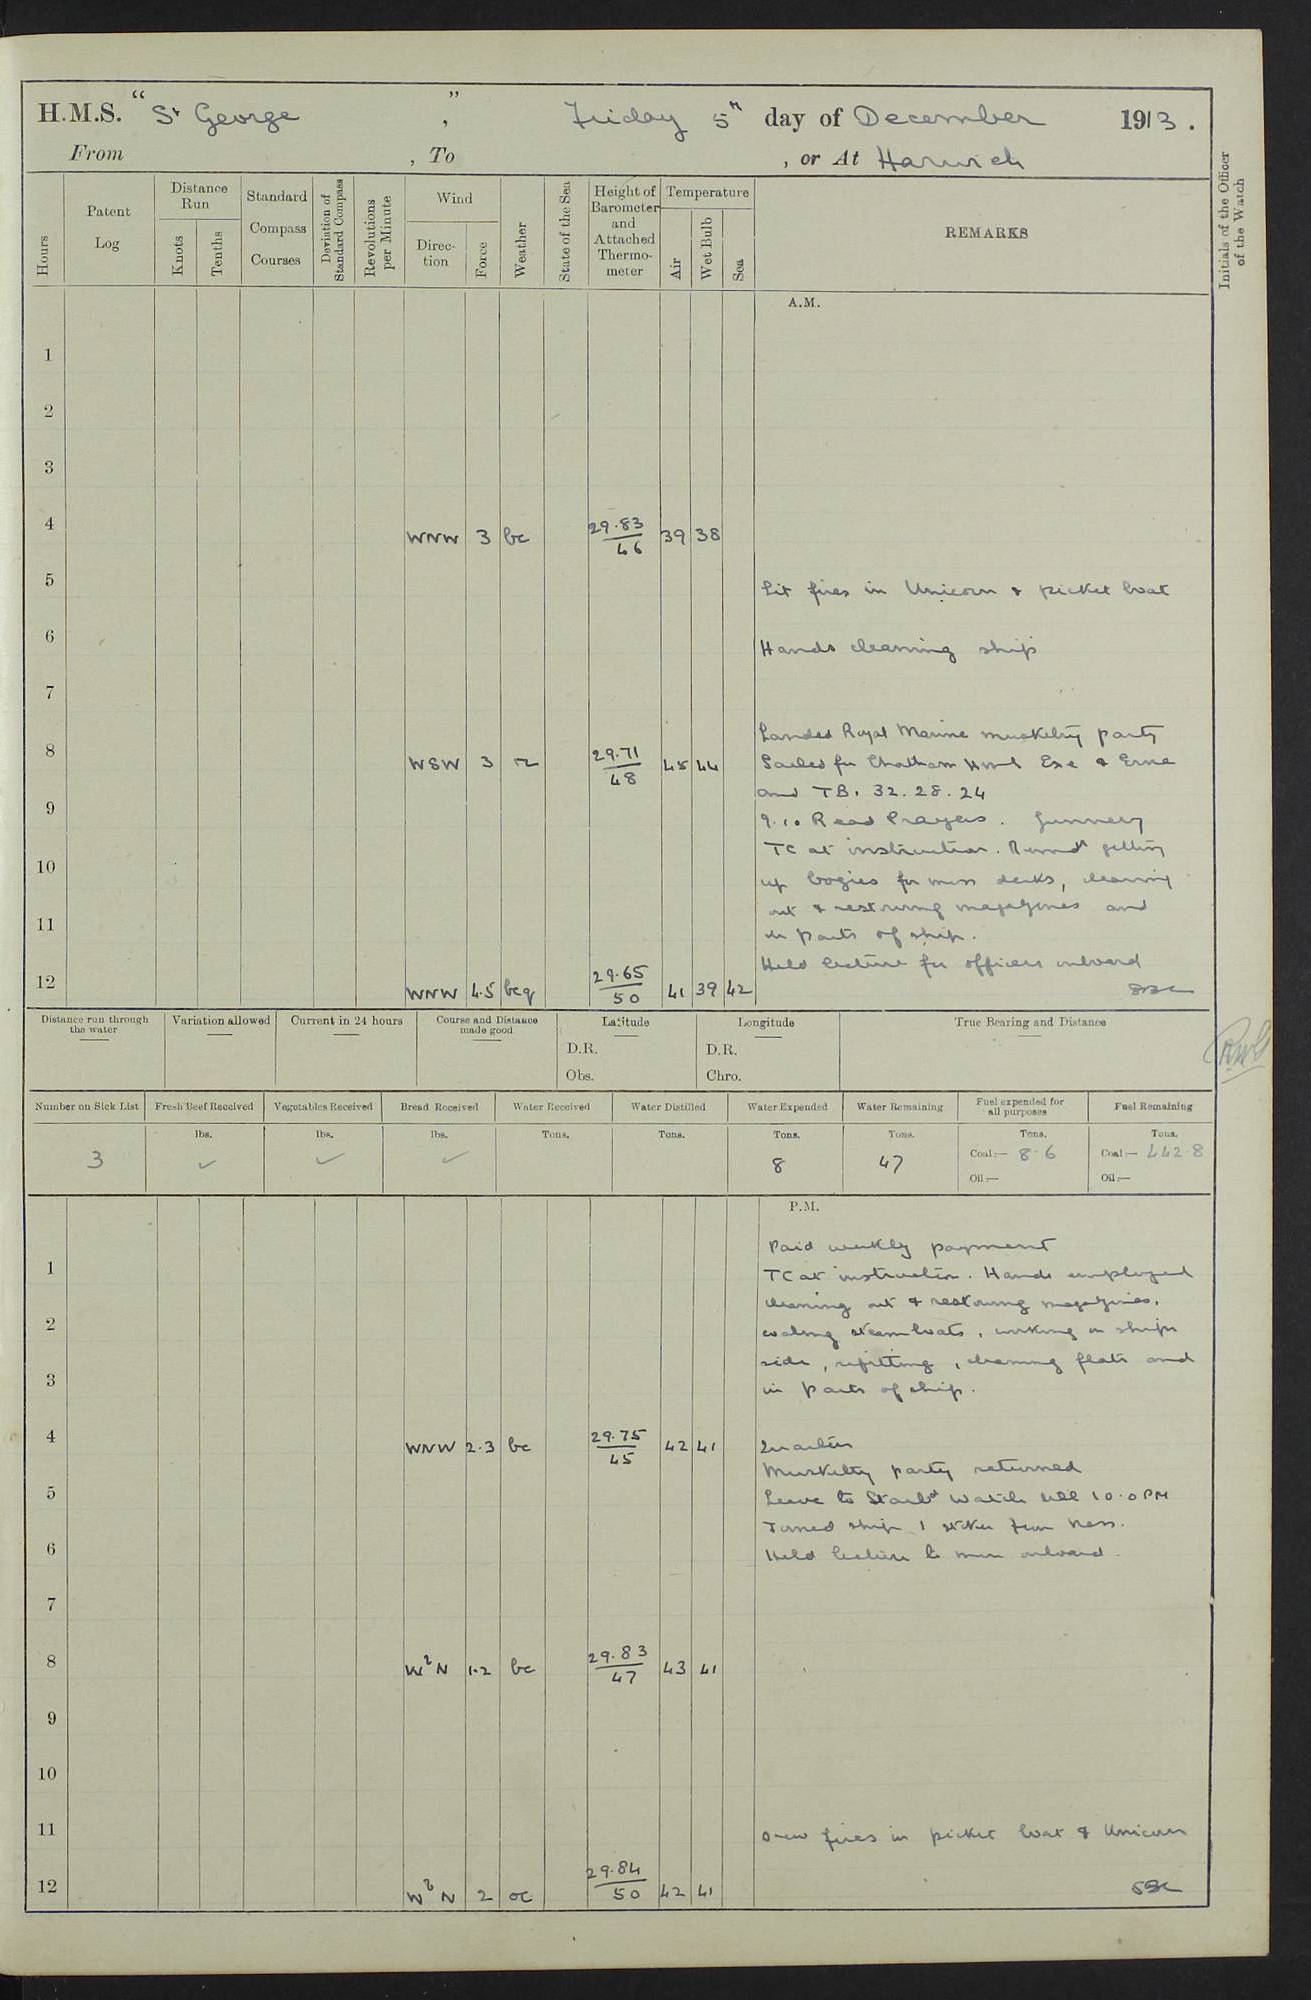 H.M.S. "St George", Friday 5th day of December 1913.
From , To , or At Harwich
Hours
Patent Log
Distance Run
Knots
Tenths
Standard Compass Courses
Deviation of Standard Compass
Revolutions per Minute
Wind
Direc-tion
Force
Weather
State of the Sea
Height of Barometer and Attached Thermo-meter
Temperature
Air
Wet Bulb
Sea
REMARKS
Initials of the Officer of the Watch
A.M.
1
2
3
4 WNW 3 bc 29.83/46 39 38
5 Lit fires in Unicorn & picket boat
6 Hands cleaning ship
7
Landed Royal Marine musketry party
8 WSW 3 29.71/48 45 44 Sailed for Chatham HMS Exe & Erne
and TB. 32. 28. 24
9 9.10 Read Prayers. Gunnery
TC at instruction. Remdr getting
10 up bogies for mess decks, cleaning
out & restowing magazines and
11 in parts of ship.
Held lecture for officers onboard
12 WNW 4.5 bcq 29.65/50 41 39 42
Distance run through the water
Variation allowed
Current in 24 hours
Course and Distance made good
Latitude
D.R.
Obs.
Longitude
D.R.
Chro.
True Bearing and Distance
Number on Sick List
Fresh Beef Received
Vegetables Received
Bread Received
Water Received
Water Distilled
Water Expended
Water Remaining
Fuel expended for all purposes
Fuel Remaining
3
lbs. ✓
lbs. ✓
lbs. ✓
Tons.
Tons.
Tons. 8
Tons. 47
Tons. Coal:— 8.6 Oil:—
Tons. Coal:— 442.8 Oil:—
P.M.
Paid weekly payment
1 TC at instruction. Hands employed
cleaning out & restowing magazines,
2 coaling steamboats, working on ships
side, refitting, cleaning flats and
3 in parts of ship.
4 WNW 2.3 bc 29.75/45 42 41 Quarters
Musketry party returned
5 Leave to Starbd Watch till 10.0 PM
Joined ship 1 stoker from
6 Held lecture to men onboard.
7
8 W²N 1.2 bc 29.83/47 43 41
9
10
11 Drew fires in picket boat & Unicorn
12 W²N 2 oc 29.84/50 42 41